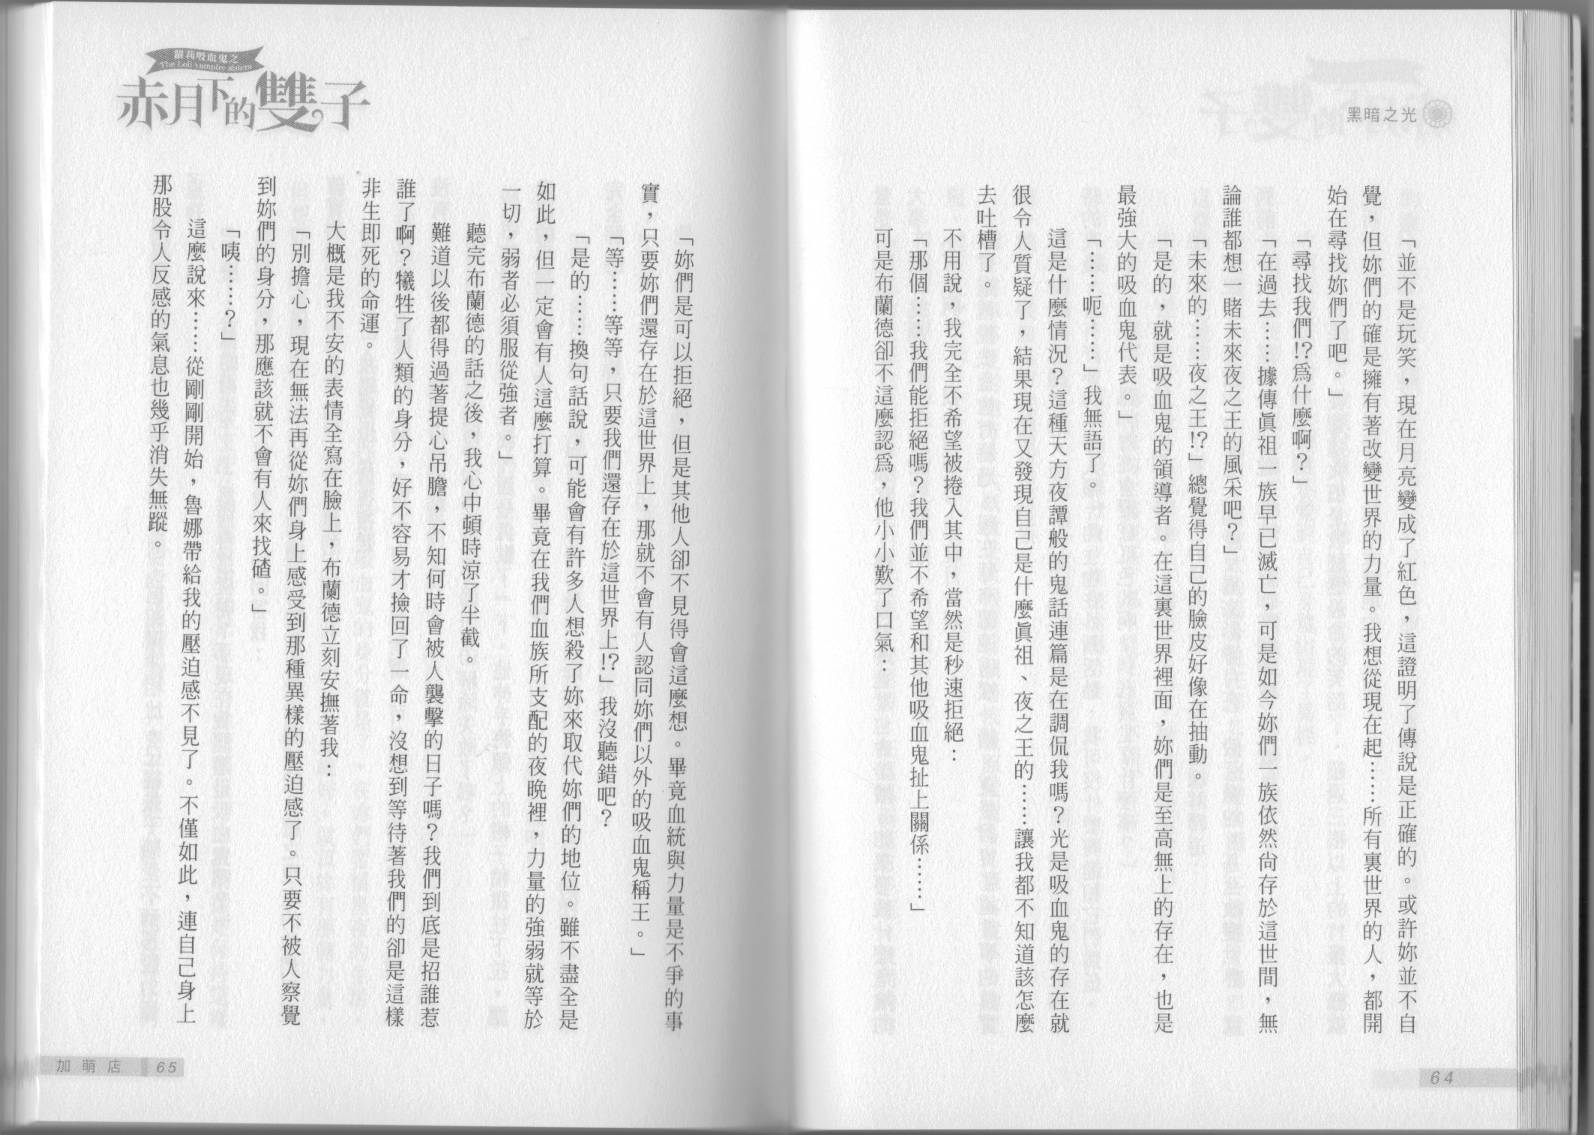 黑暗之光
「並不是玩笑，現在月亮變成了紅色，這證明了傳說是正確的。或許妳並不自
覺，但妳們的確是擁有著改變世界的力量。我想從現在起……所有裏世界的人，都開
始在尋找妳們了吧。」
「尋找我們!?為什麼啊？」
「在過去……據傳眞祖一族早已滅亡，可是如今妳們一族依然尙存於這世間，無
論誰都想一賭未來夜之王的風采吧？」
「未來的……夜之王!?」總覺得自己的臉皮好像在抽動。
「是的，就是吸血鬼的領導者。在這裏世界裡面，妳們是至高無上的存在，也是
最強大的吸血鬼代表。」
「……呃……」我無語了。
這是什麼情況？這種天方夜譚般的鬼話連篇是在調侃我嗎？光是吸血鬼的存在就
很令人質疑了，結果現在又發現自己是什麼眞祖、夜之王的……讓我都不知道該怎麼
去吐槽了。
不用說，我完全不希望被捲入其中，當然是秒速拒絕：
「那個……我們能拒絕嗎？我們並不希望和其他吸血鬼扯上關係……」
可是布蘭德卻不這麼認為，他小小歎了口氣：
64
蘿莉吸血鬼之
The Loli vampire sisters
赤月下的雙子
「妳們是可以拒絕，但是其他人卻不見得會這麼想。畢竟血統與力量是不爭的事
實，只要妳們還存在於這世界上，那就不會有人認同妳們以外的吸血鬼稱王。」
「等……等等，只要我們還存在於這世界上!?」我沒聽錯吧？
「是的……換句話說，可能會有許多人想殺了妳來取代妳們的地位。雖不盡全是
如此，但一定會有人這麼打算。畢竟在我們血族所支配的夜晚裡，力量的強弱就等於
一切，弱者必須服從強者。」
聽完布蘭德的話之後，我心中頓時涼了半截。
難道以後都得過著提心吊膽，不知何時會被人襲擊的日子嗎？我們到底是招誰惹
誰了啊？犧牲了人類的身分，好不容易才撿回了一命，沒想到等待著我們的卻是這樣
非生即死的命運。
大概是我不安的表情全寫在臉上，布蘭德立刻安撫著我：
「別擔心，現在無法再從妳們身上感受到那種異樣的壓迫感了。只要不被人察覺
到妳們的身分，那應該就不會有人來找碴。」
「咦……？」
這麼說來……從剛剛開始，魯娜帶給我的壓迫感不見了。不僅如此，連自己身上
那股令人反感的氣息也幾乎消失無蹤。
加萌店 65